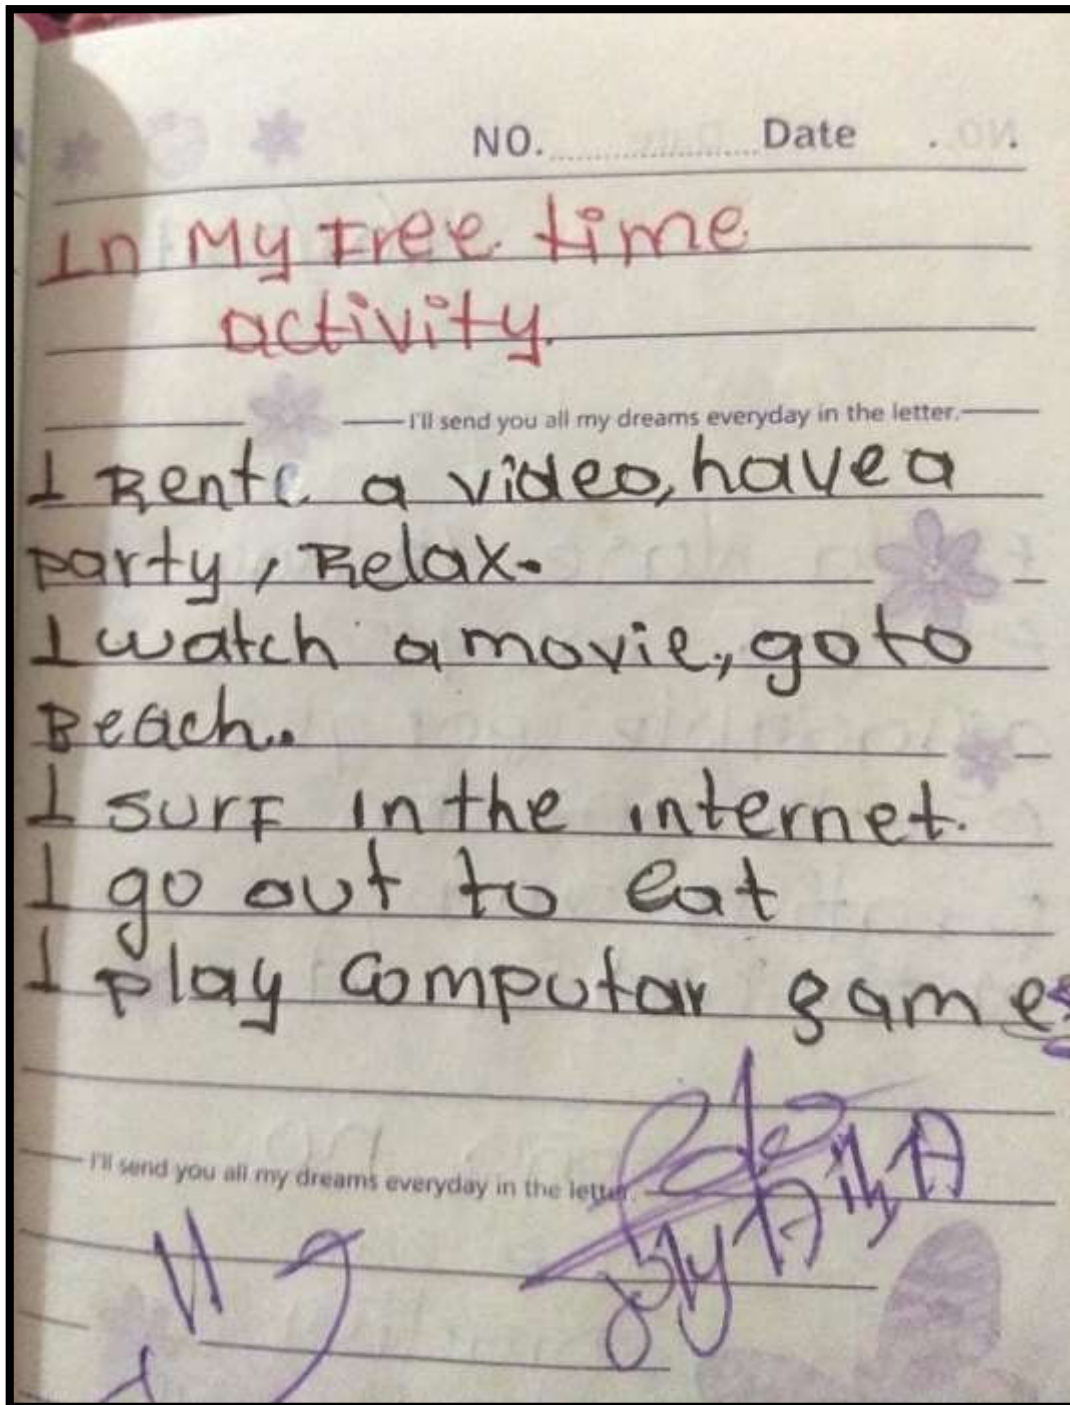 NO. Date
In My Free time
activity.
I'll send you all my dreams everyday in the letter.
I Rent a video, have a
party, Relax.
I watch a movie, go to
Beach.
I surf in the internet.
I go out to eat
I play computar games
I'll send you all my dreams everyday in the letter.